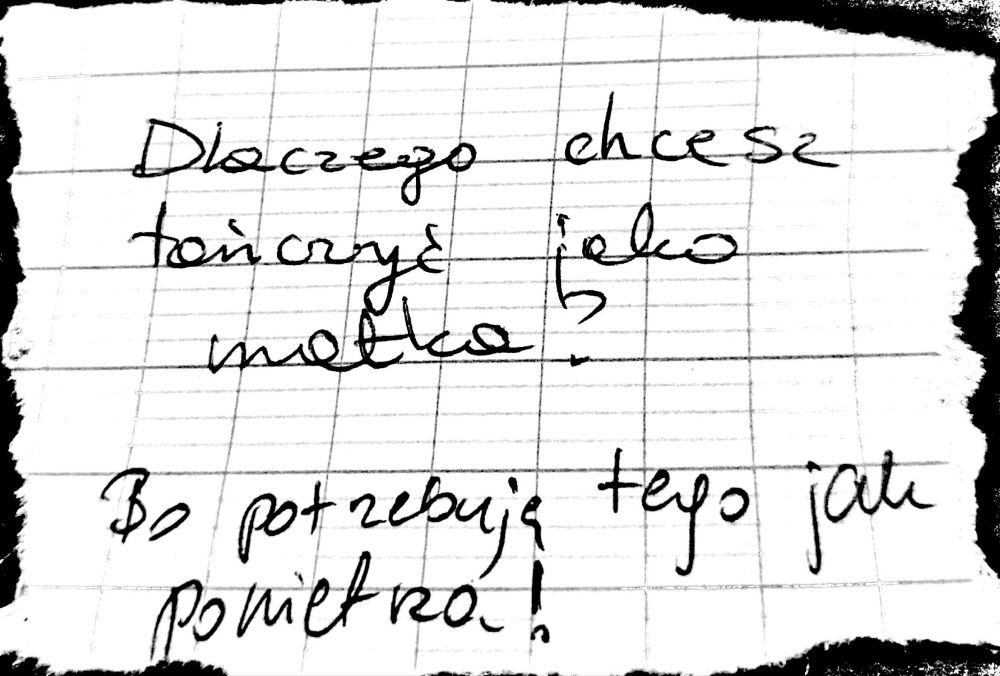 Dlaczego chcesz
tańczyć jako
matka?
Bo potrzebuję tego jak
powietrza!